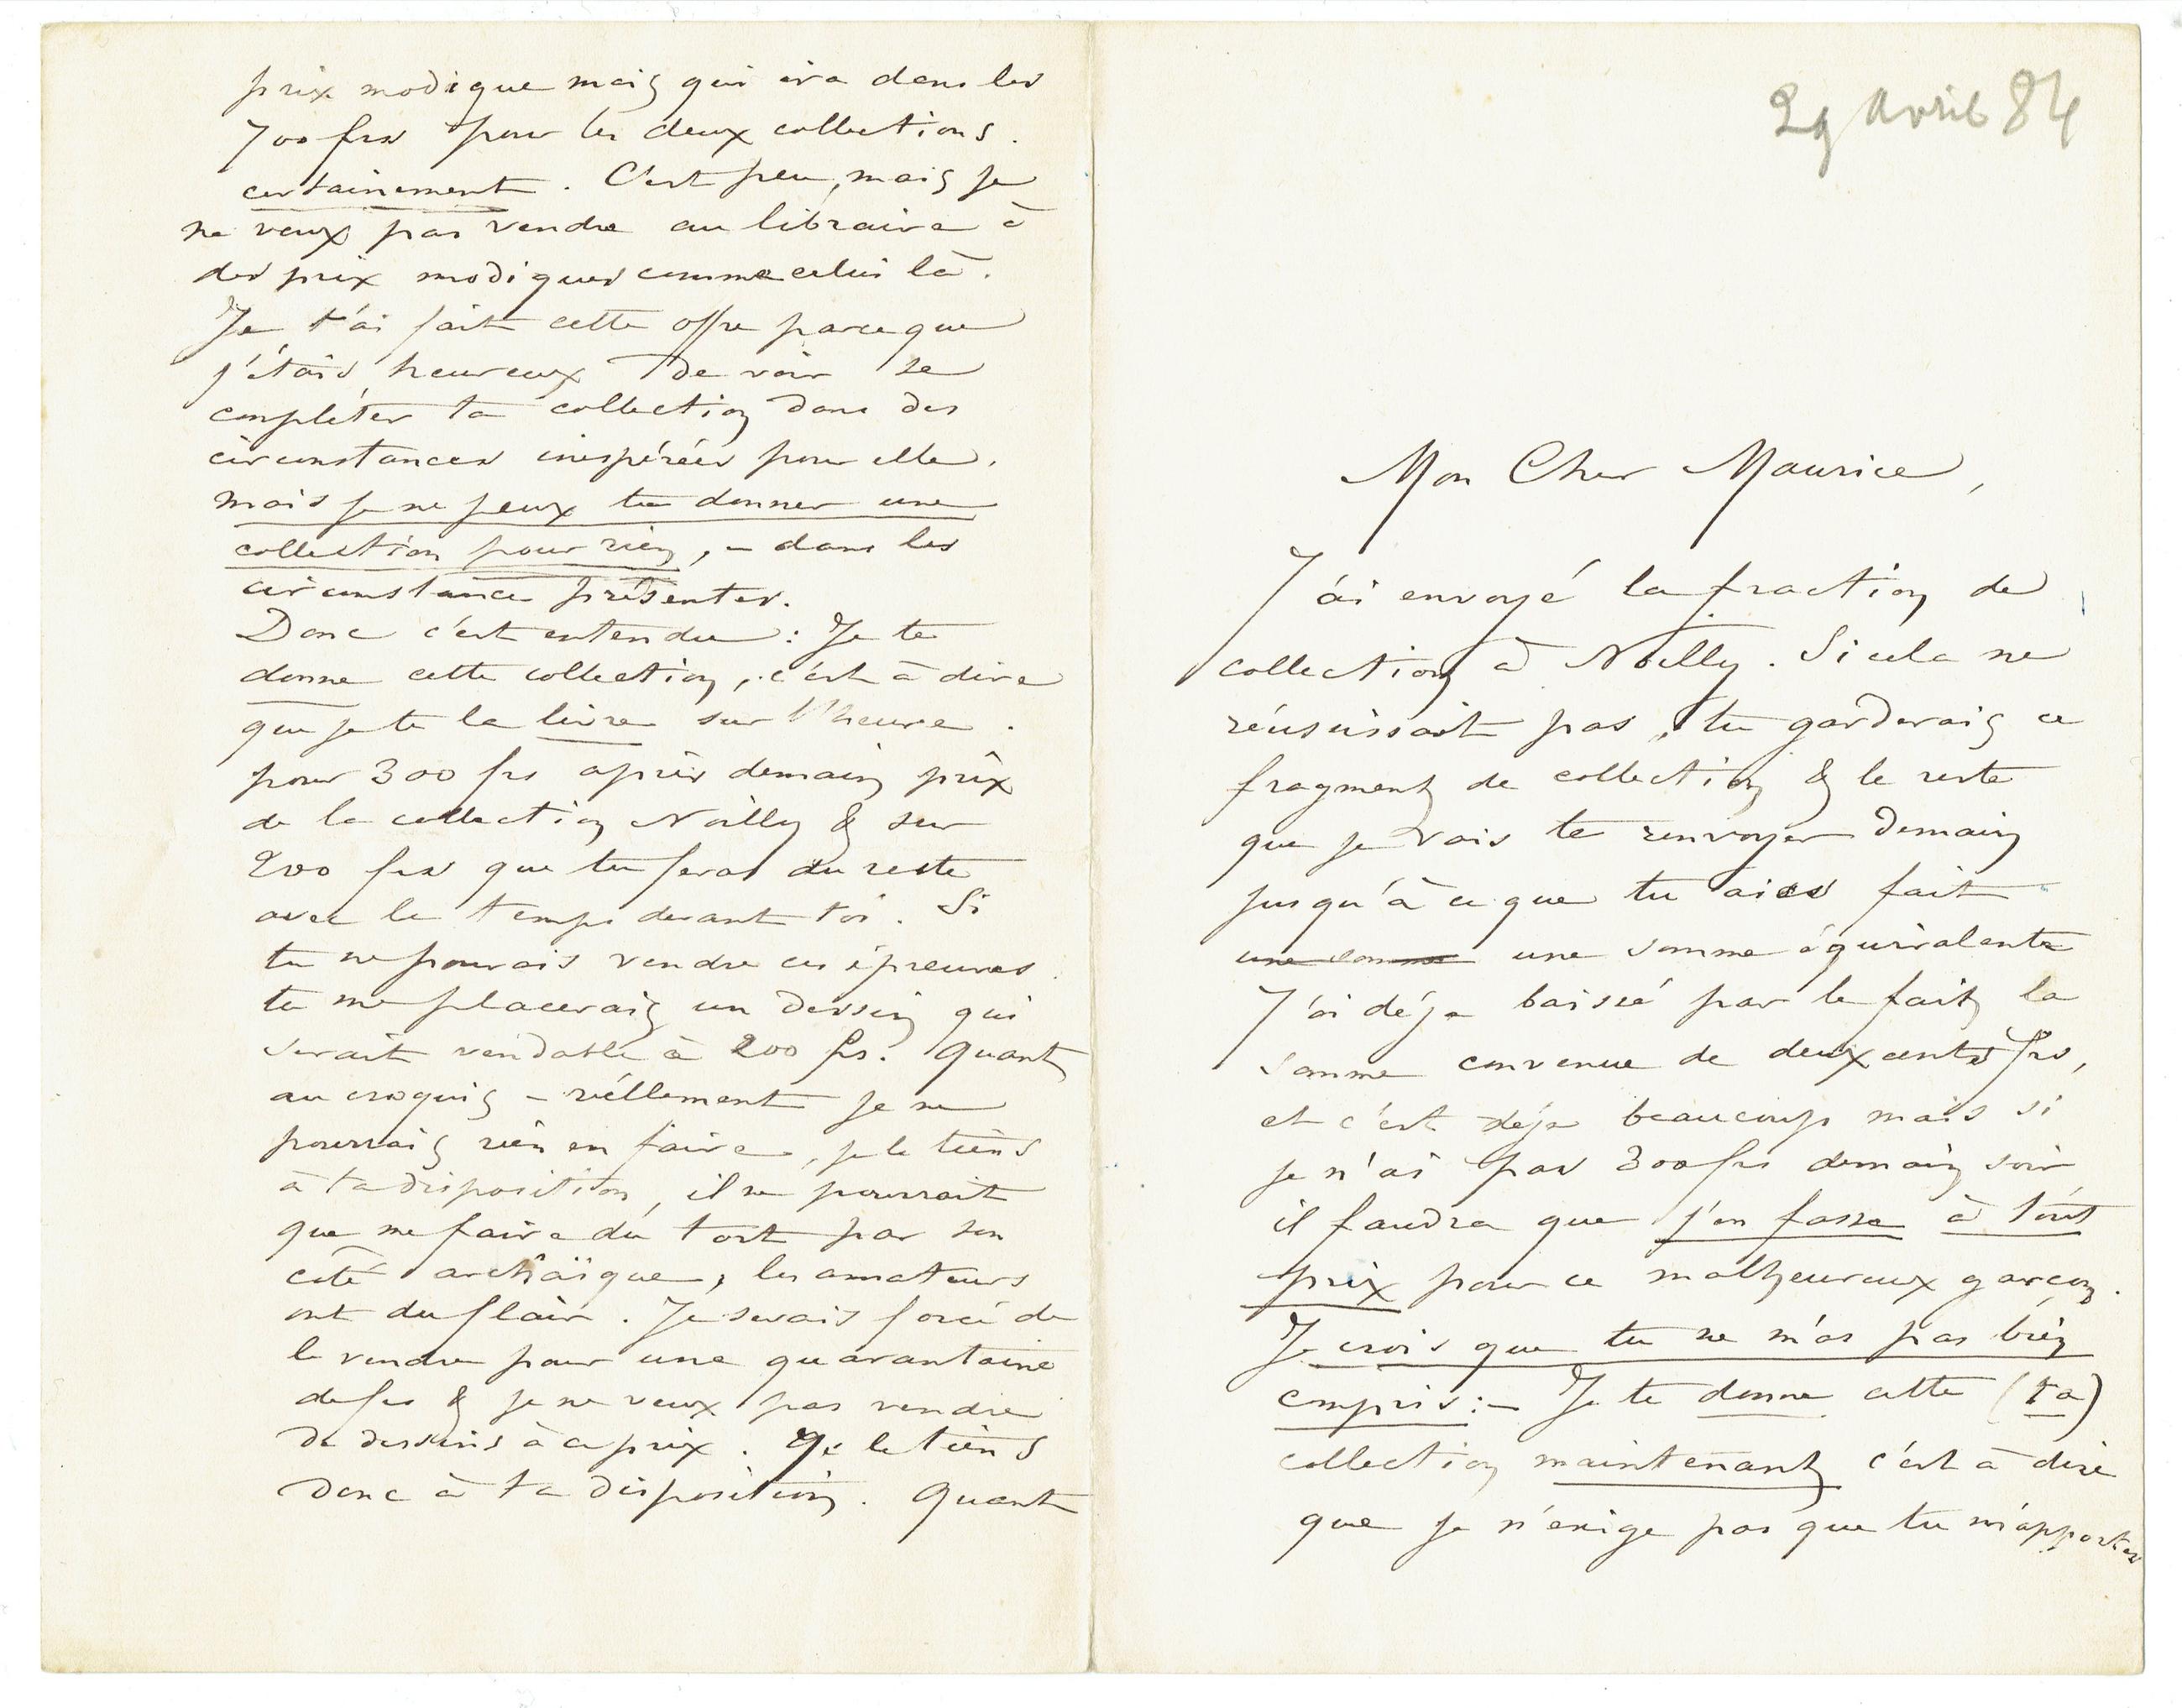 29 Avril 84
Mon Cher Maurice,
J'ai envoyé la fraction de
collection à Noilly. Si cela ne
réussissait pas, tu garderais ce
fragment de collection & le reste
que je vais te renvoyer demain
jusqu'à ce que tu aies fait
une somme une somme équivalente
J'ai déjà baissé par le fait la
somme convenue de deux cents frs,
et c'est déjà beaucoup mais si
je n'ai pas 300 frs demain soir
il faudra que j'en fasse à tout
prix pour ce malheureux garçon.
Je crois que tu ne m'as pas bien
compris :– Je te donne cette (ta)
collection maintenant c'est à dire
que je n'exige pas que tu m'apportes
prix modique mais qui ira dans les
700 frs pour les deux collections.
certainement. C'est peu, mais je
ne veux pas vendre au libraire à
des prix modiques comme celui là.
Je t'ai fait cette offre parce que
j'étais heureux de voir se
compléter ta collection dans des
circonstances inespérées pour elle.
mais je ne peux te donner une
collection pour rien, – dans les
circonstances présentes.
Donc c'est entendu : Je te
donne cette collection, c'est à dire
que je te la livre sur l'heure.
pour 300 frs après demain prix
de la collection Noilly & sur
200 frs que tu feras du reste
avec le temps devant toi. Si
tu ne pouvais vendre ces épreuves
tu me placerais un dessin qui
serait vendable à 200 frs. Quant
au croquis – réellement je ne
pourrais rien en faire, je le tiens
à ta disposition, il ne pourrait
que me faire du tort par son
coté archaïque, les amateurs
ont du flair. Je serais forcé de
le vendre pour une quarantaine
de frs & je ne veux pas vendre
de dessins à ce prix. Je le tiens
donc à ta disposition. Quant